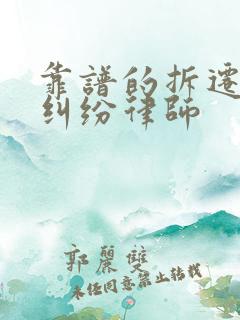 靠譜的拆遷
糾紛律師
郭麗雙
未经同意禁止转载